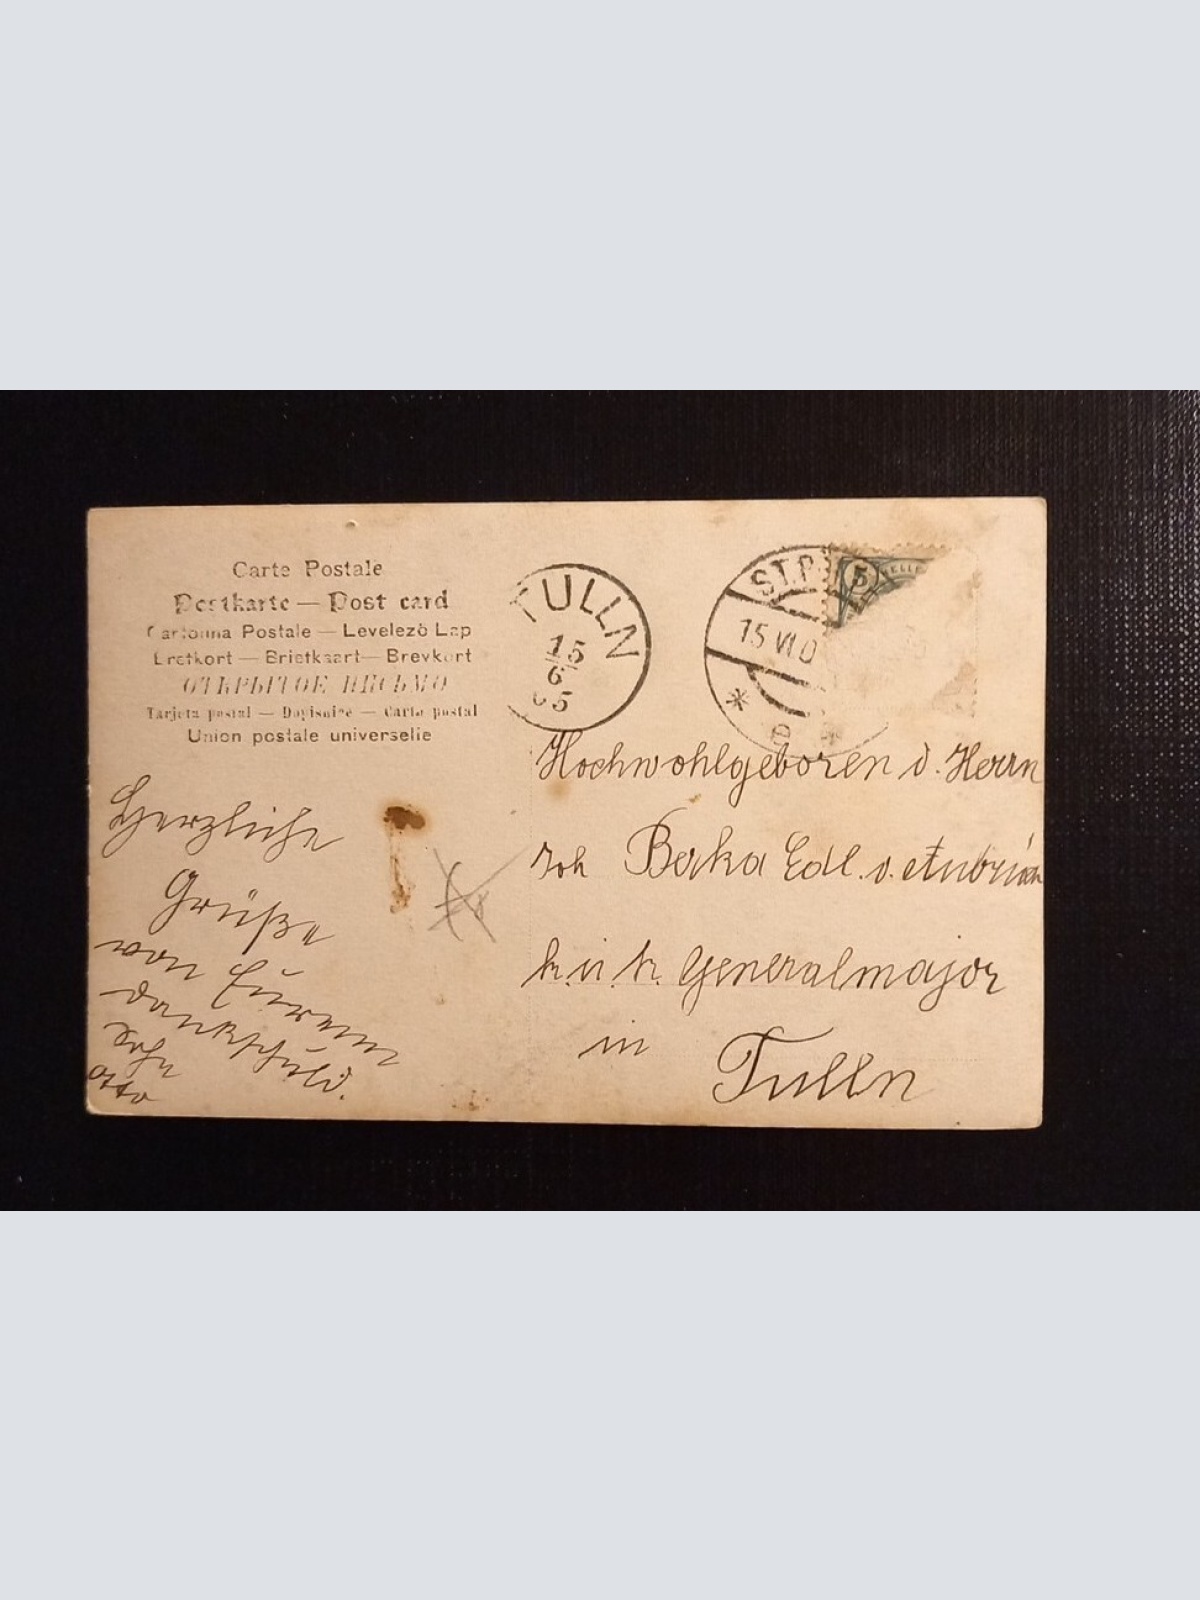 Carte Postale
Postkarte — Post card
Cartolina Postale — Levelezõ Lap
Brefkort — Briefkaart — Brevkort
ОТКРЫТОЕ ПИСЬМО
Tarjeta postal — Dopisnice — Carta postal
Union postale universelle
TULLN
15
6
05
ST.P
5
HELLER
15 VI 0
Hochwohlgeboren d. Herrn
Joh Berka Edl. v.
k. u. k. Generalmajor
in Tulln
Herzliche
Grüße
von Eurem
dankschuld.
Sohn
Otto